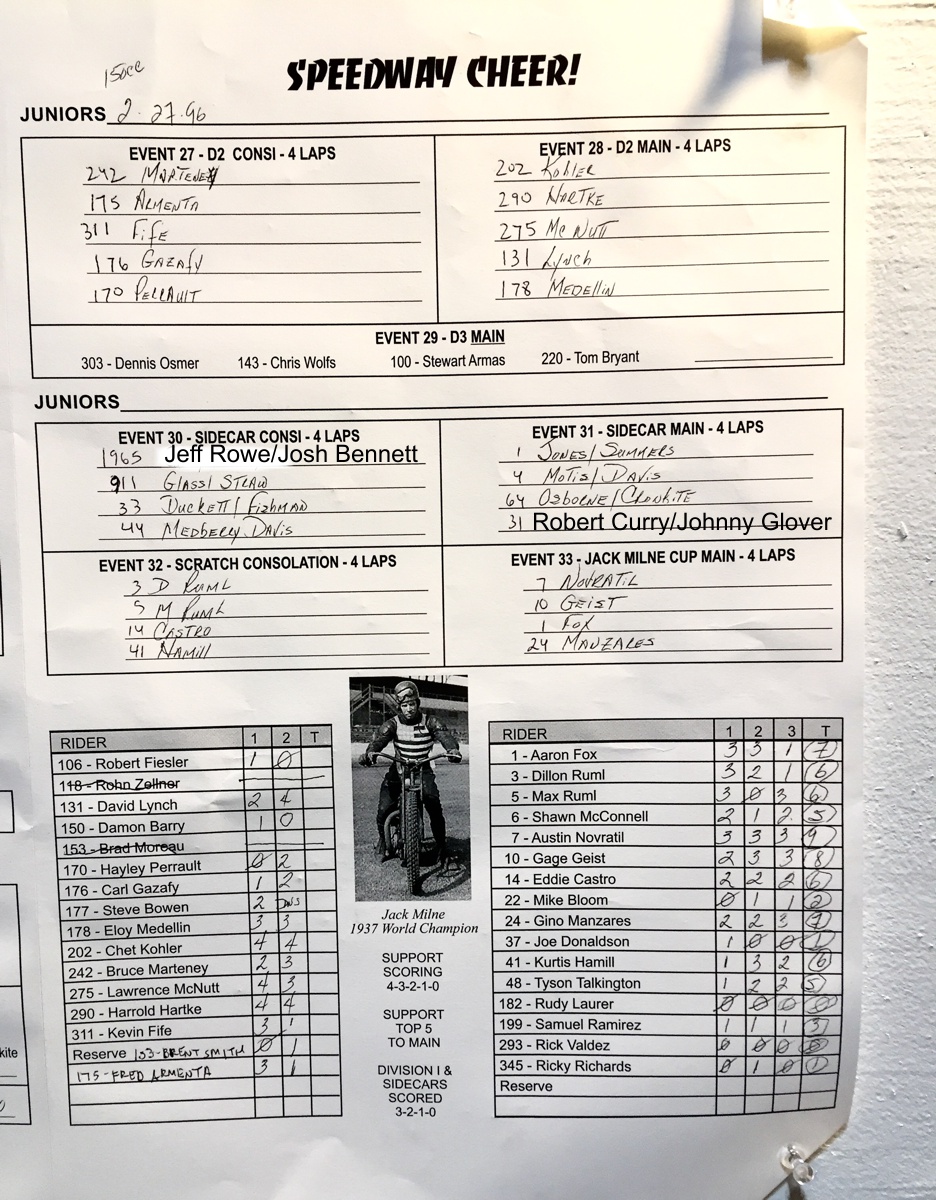 SPEEDWAY CHEER!
150cc
JUNIORS 2-27-96
EVENT 27 - D2 CONSI - 4 LAPS
242 MARTENEY
175 ARMENTA
311 FifE
176 GAZAfy
170 PERRAULT
EVENT 28 - D2 MAIN - 4 LAPS
202 KohlER
290 HARTKE
275 Mc NUTT
131 Lynch
178 MEDEllin
EVENT 29 - D3 MAIN
303 - Dennis Osmer 143 - Chris Wolfs 100 - Stewart Armas 220 - Tom Bryant
JUNIORS
EVENT 30 - SIDECAR CONSI - 4 LAPS
1965 Jeff Rowe/Josh Bennett
911 GlASS/ STRAW
33 DUCKETT/ FizhMAN
44 MEDBERLY DAVIS
EVENT 31 - SIDECAR MAIN - 4 LAPS
1 JONES/ SUMMERS
4 MOTIS/ DAVIS
64 OSBORNE/CRONKITE
31 Robert Curry/Johnny Glover
EVENT 32 - SCRATCH CONSOLATION - 4 LAPS
3 D RUML
5 M RUML
14 CASTRO
41 HAMill
EVENT 33 - JACK MILNE CUP MAIN - 4 LAPS
7 NOVRATIL
10 GEIST
1 FOX
24 MANZARES
RIDER 1 2 T
106 - Robert Fiesler 1 0
118 - Rohn Zellner
131 - David Lynch 2 4
150 - Damon Barry 1 0
153 - Brad Moreau
170 - Hayley Perrault 0 2
176 - Carl Gazafy 1 2
177 - Steve Bowen 2 DNS
178 - Eloy Medellin 3 3
202 - Chet Kohler 4 4
242 - Bruce Marteney 2 3
275 - Lawrence McNutt 4 3
290 - Harrold Hartke 4 4
311 - Kevin Fife 3 1
Reserve 103-BRENT SMITH 0 1
175-FRED ARMENTA 3 1
Jack Milne
1937 World Champion
SUPPORT
SCORING
4-3-2-1-0
SUPPORT
TOP 5
TO MAIN
DIVISION I &
SIDECARS
SCORED
3-2-1-0
RIDER 1 2 3 T
1 - Aaron Fox 3 3 1 7
3 - Dillon Ruml 3 2 1 6
5 - Max Ruml 3 0 3 6
6 - Shawn McConnell 2 1 2 5
7 - Austin Novratil 3 3 3 9
10 - Gage Geist 2 3 3 8
14 - Eddie Castro 2 2 2 6
22 - Mike Bloom 0 1 1 2
24 - Gino Manzares 2 2 3 7
37 - Joe Donaldson 1 0 0 1
41 - Kurtis Hamill 1 3 2 6
48 - Tyson Talkington 1 2 2 5
182 - Rudy Laurer 0 0 0 0
199 - Samuel Ramirez 1 1 1 3
293 - Rick Valdez 0 0 0 0
345 - Ricky Richards 0 1 0 1
Reserve
kite